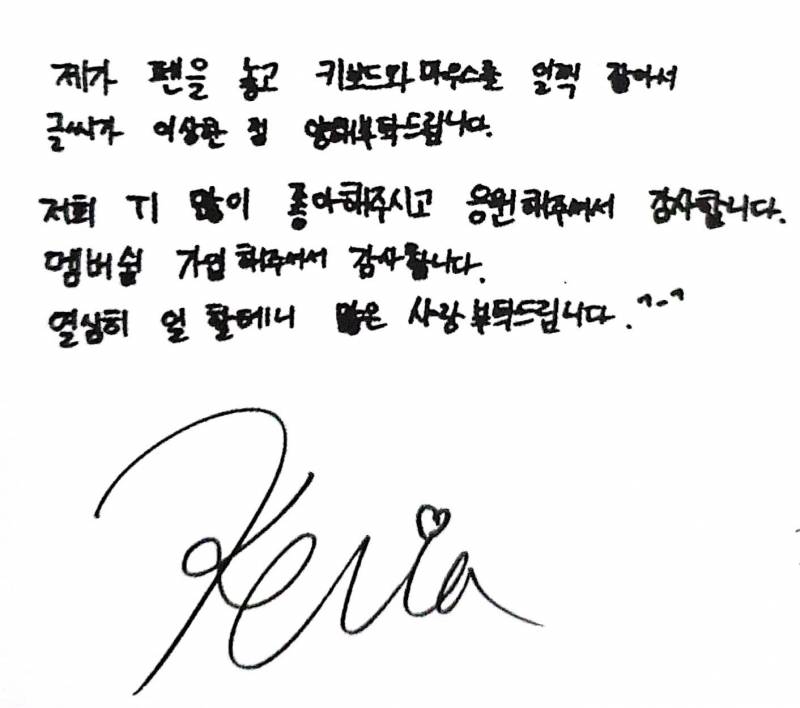 제가 펜을 놓고 키보드와 마우스를 일찍 잡아서
글씨가 이상한 점 양해부탁드립니다.
저희 T1 많이 좋아해주시고 응원해주셔서 감사합니다.
멤버쉽 가입해주셔서 감사합니다.
열심히 일 할테니 많은 사랑 부탁드립니다. ^-^
Keria